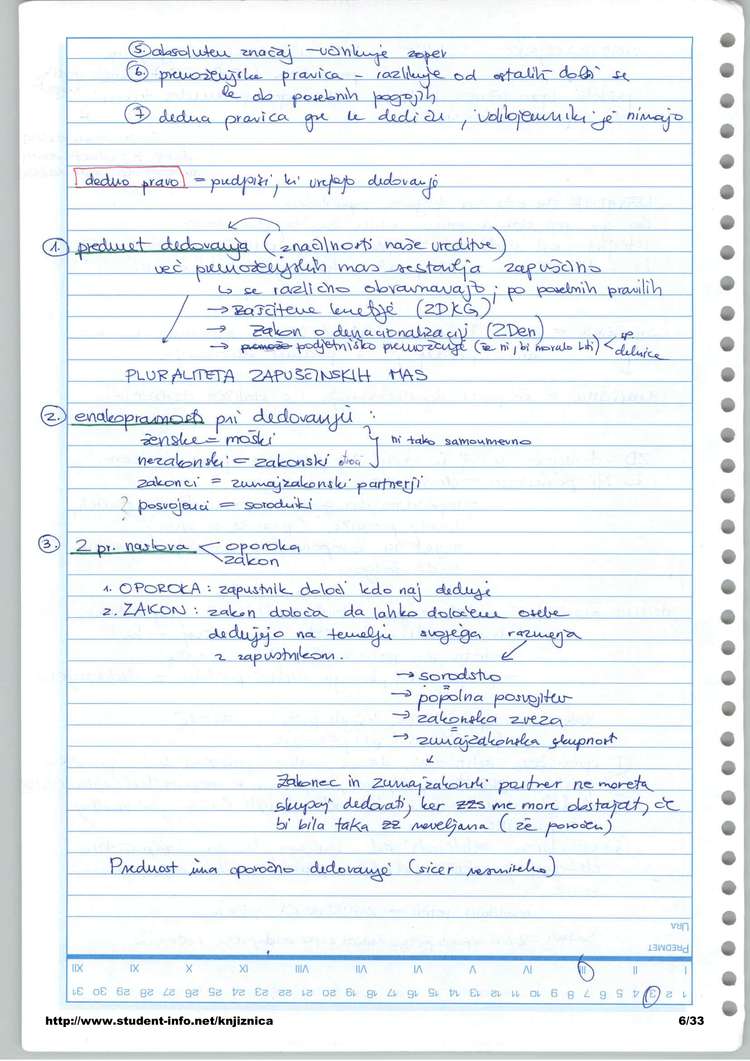 5. absoluten značaj – učinkuje zoper
6. premoženjska pravica – razlikuje od ostalih dobi se
le ob posebnih pogojih
7 dedna pravica gre le dediču, volilojemniki je nimajo
dedno pravo = predpisi, ki urejajo dedovanje
1. predmet dedovanja (značilnosti naše ureditve)
več premoženjskih mas sestavlja zapuščino
↳ se različno obravnavajo; po posebnih pravilih
→ zaščitene kmetije (ZDKG)
→ Zakon o denacionalizaciji (ZDen)
→ podjetniško premoženje (če ni, bi moralo biti) < sp
delnice
PLURALITETA ZAPUŠČINSKIH MAS
2. enakopravnost pri dedovanju :
ženske = moški
nezakonski = zakonski otroci } ni tako samoumevno
zakonci = zunajzakonski partnerji
? posvojenci = sorodniki
3. 2 pr. naslova < oporoka
zakon
1. OPOROKA : zapustnik določi kdo naj deduje
2. ZAKON : zakon določa da lahko določene osebe
dedujejo na temelju svojega razmerja
z zapustnikom.
→ sorodstvo
→ popolna posvojitev
→ zakonska zveza
→ zunajzakonska skupnost
Zakonec in zunajzakonski partner ne moreta
skupaj dedovati, ker ZZS ne more obstajati, če
bi bila taka ZZ neveljavna (že poročen)
Prednost ima oporočno dedovanje (sicer nesmiselno)
URA
PREDMET
I II III IV V VI VII VIII IX X XI XII
1 2 3 4 5 6 7 8 9 10 11 12 13 14 15 16 17 18 19 20 21 22 23 24 25 26 27 28 29 30 31
http://www.student-info.net/knjiznica 6/33